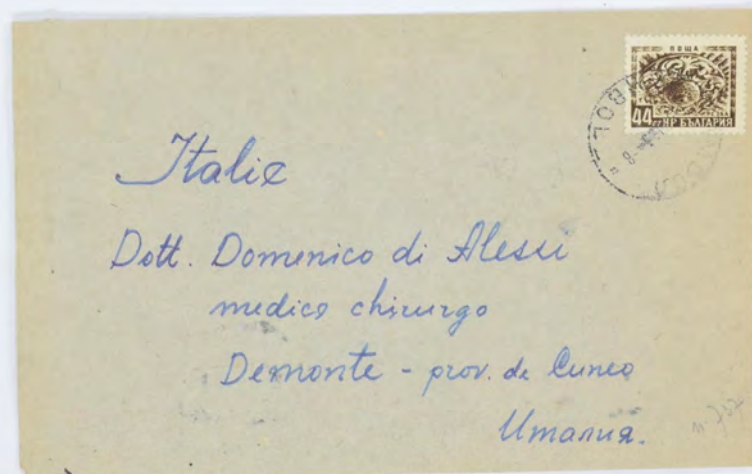 ПОЩА
44 НР БЪЛГАРИЯ
Italie
Dott. Domenico di Alessi
medico chirurgo
Demonte - prov. de Cuneo
Италия.